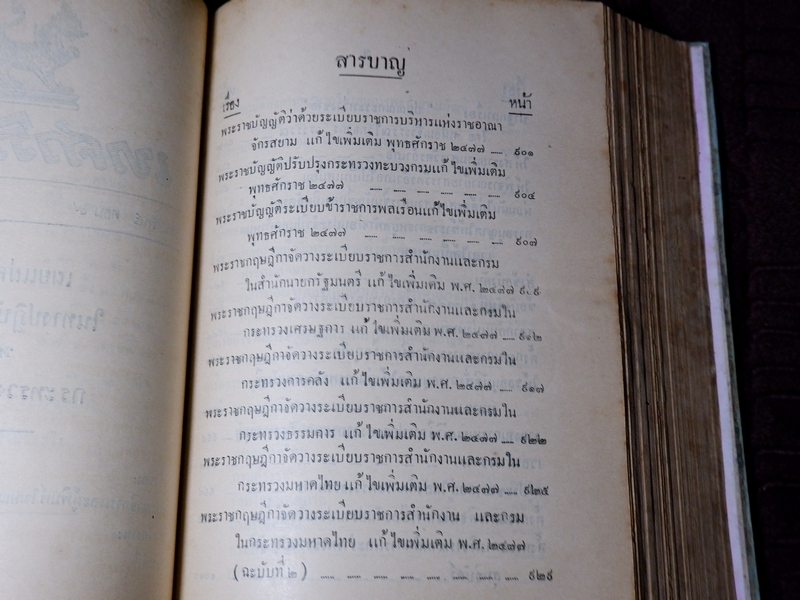 สารบาญ
เรื่อง หน้า
พระราชบัญญัติว่าด้วยระเบียบราชการบริหารแห่งราชอาณา
จักรสยาม แก้ไขเพิ่มเติม พุทธศักราช ๒๔๗๗ ... ๙๐๑
พระราชบัญญัติปรับปรุงกระทรวงทะบวงกรมแก้ไขเพิ่มเติม
พุทธศักราช ๒๔๗๗ ... ... ... ... ... ... ๙๐๔
พระราชบัญญัติระเบียบข้าราชการพลเรือนแก้ไขเพิ่มเติม
พุทธศักราช ๒๔๗๗ ... ... ... ... ... ... ๙๐๗
พระราชกฤษฎีกาจัดวางระเบียบราชการสำนักงานและกรม
ในสำนักนายกรัฐมนตรี แก้ไขเพิ่มเติม พ.ศ. ๒๔๗๗
พระราชกฤษฎีกาจัดวางระเบียบราชการสำนักงานและกรมใน
กระทรวงเศรษฐการ แก้ไขเพิ่มเติม พ.ศ. ๒๔๗๗ ... ๙๑๒
พระราชกฤษฎีกาจัดวางระเบียบราชการสำนักงานและกรมใน
กระทรวงการคลัง แก้ไขเพิ่มเติม พ.ศ. ๒๔๗๗ ... ๙๑๗
พระราชกฤษฎีกาจัดวางระเบียบราชการสำนักงานและกรมใน
กระทรวงธรรมการ แก้ไขเพิ่มเติม พ.ศ. ๒๔๗๗ ... ๙๒๒
พระราชกฤษฎีกาจัดวางระเบียบราชการสำนักงานและกรมใน
กระทรวงมหาดไทย แก้ไขเพิ่มเติม พ.ศ. ๒๔๗๗ ... ๙๒๕
พระราชกฤษฎีกาจัดวางระเบียบราชการสำนักงาน และกรม
ในกระทรวงมหาดไทย แก้ไขเพิ่มเติม พ.ศ. ๒๔๗๗
(ฉะบับที่ ๒) ... ... ... ... ... ... ... ... ๙๒๙